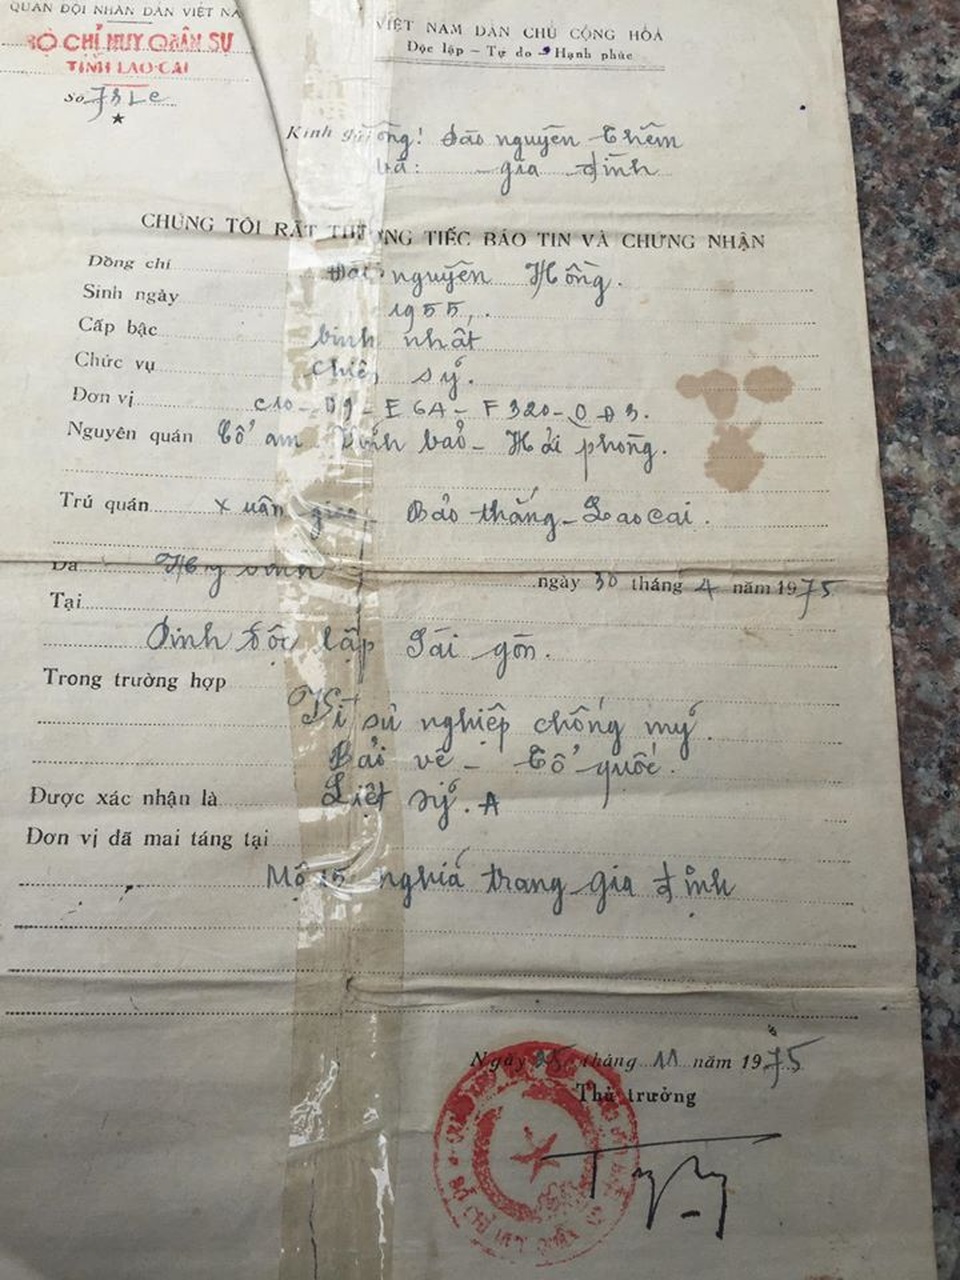 QUÂN ĐỘI NHÂN DÂN VIỆT NA
BỘ CHỈ HUY QUÂN SỰ
TỈNH LAO-CAI
Số
VIỆT NAM DÂN CHỦ CỘNG HÒA
Độc lập - Tự do - Hạnh phúc
Kính gửi ông! Đào nguyên Thêm
và: gia đình
CHÚNG TÔI RẤT THƯƠNG TIẾC BÁO TIN VÀ CHỨNG NHẬN
Đồng chí Đào nguyên Hồng.
Sinh ngày 1955,.
Cấp bậc binh nhất
Chức vụ chiến sỹ.
Đơn vị c10 - D9 - E 64 - F 320 - Q Đ 3.
Nguyên quán Cổ am Vĩnh bảo - Hải phòng.
Trú quán Xuân giao Bảo thắng - Lao cai.
Đã Hy sinh ngày 30 tháng 4 năm 1975
Tại
Dinh độc lập Sài gòn.
Trong trường hợp
Vì sử nghiệp chống mỹ.
Bảo vệ - Tổ quốc.
Được xác nhận là Liệt sỹ. A
Đơn vị đã mai táng tại
Mộ 15 nghĩa trang gia định
Ngày 25 tháng 11 năm 1975
Thủ trưởng